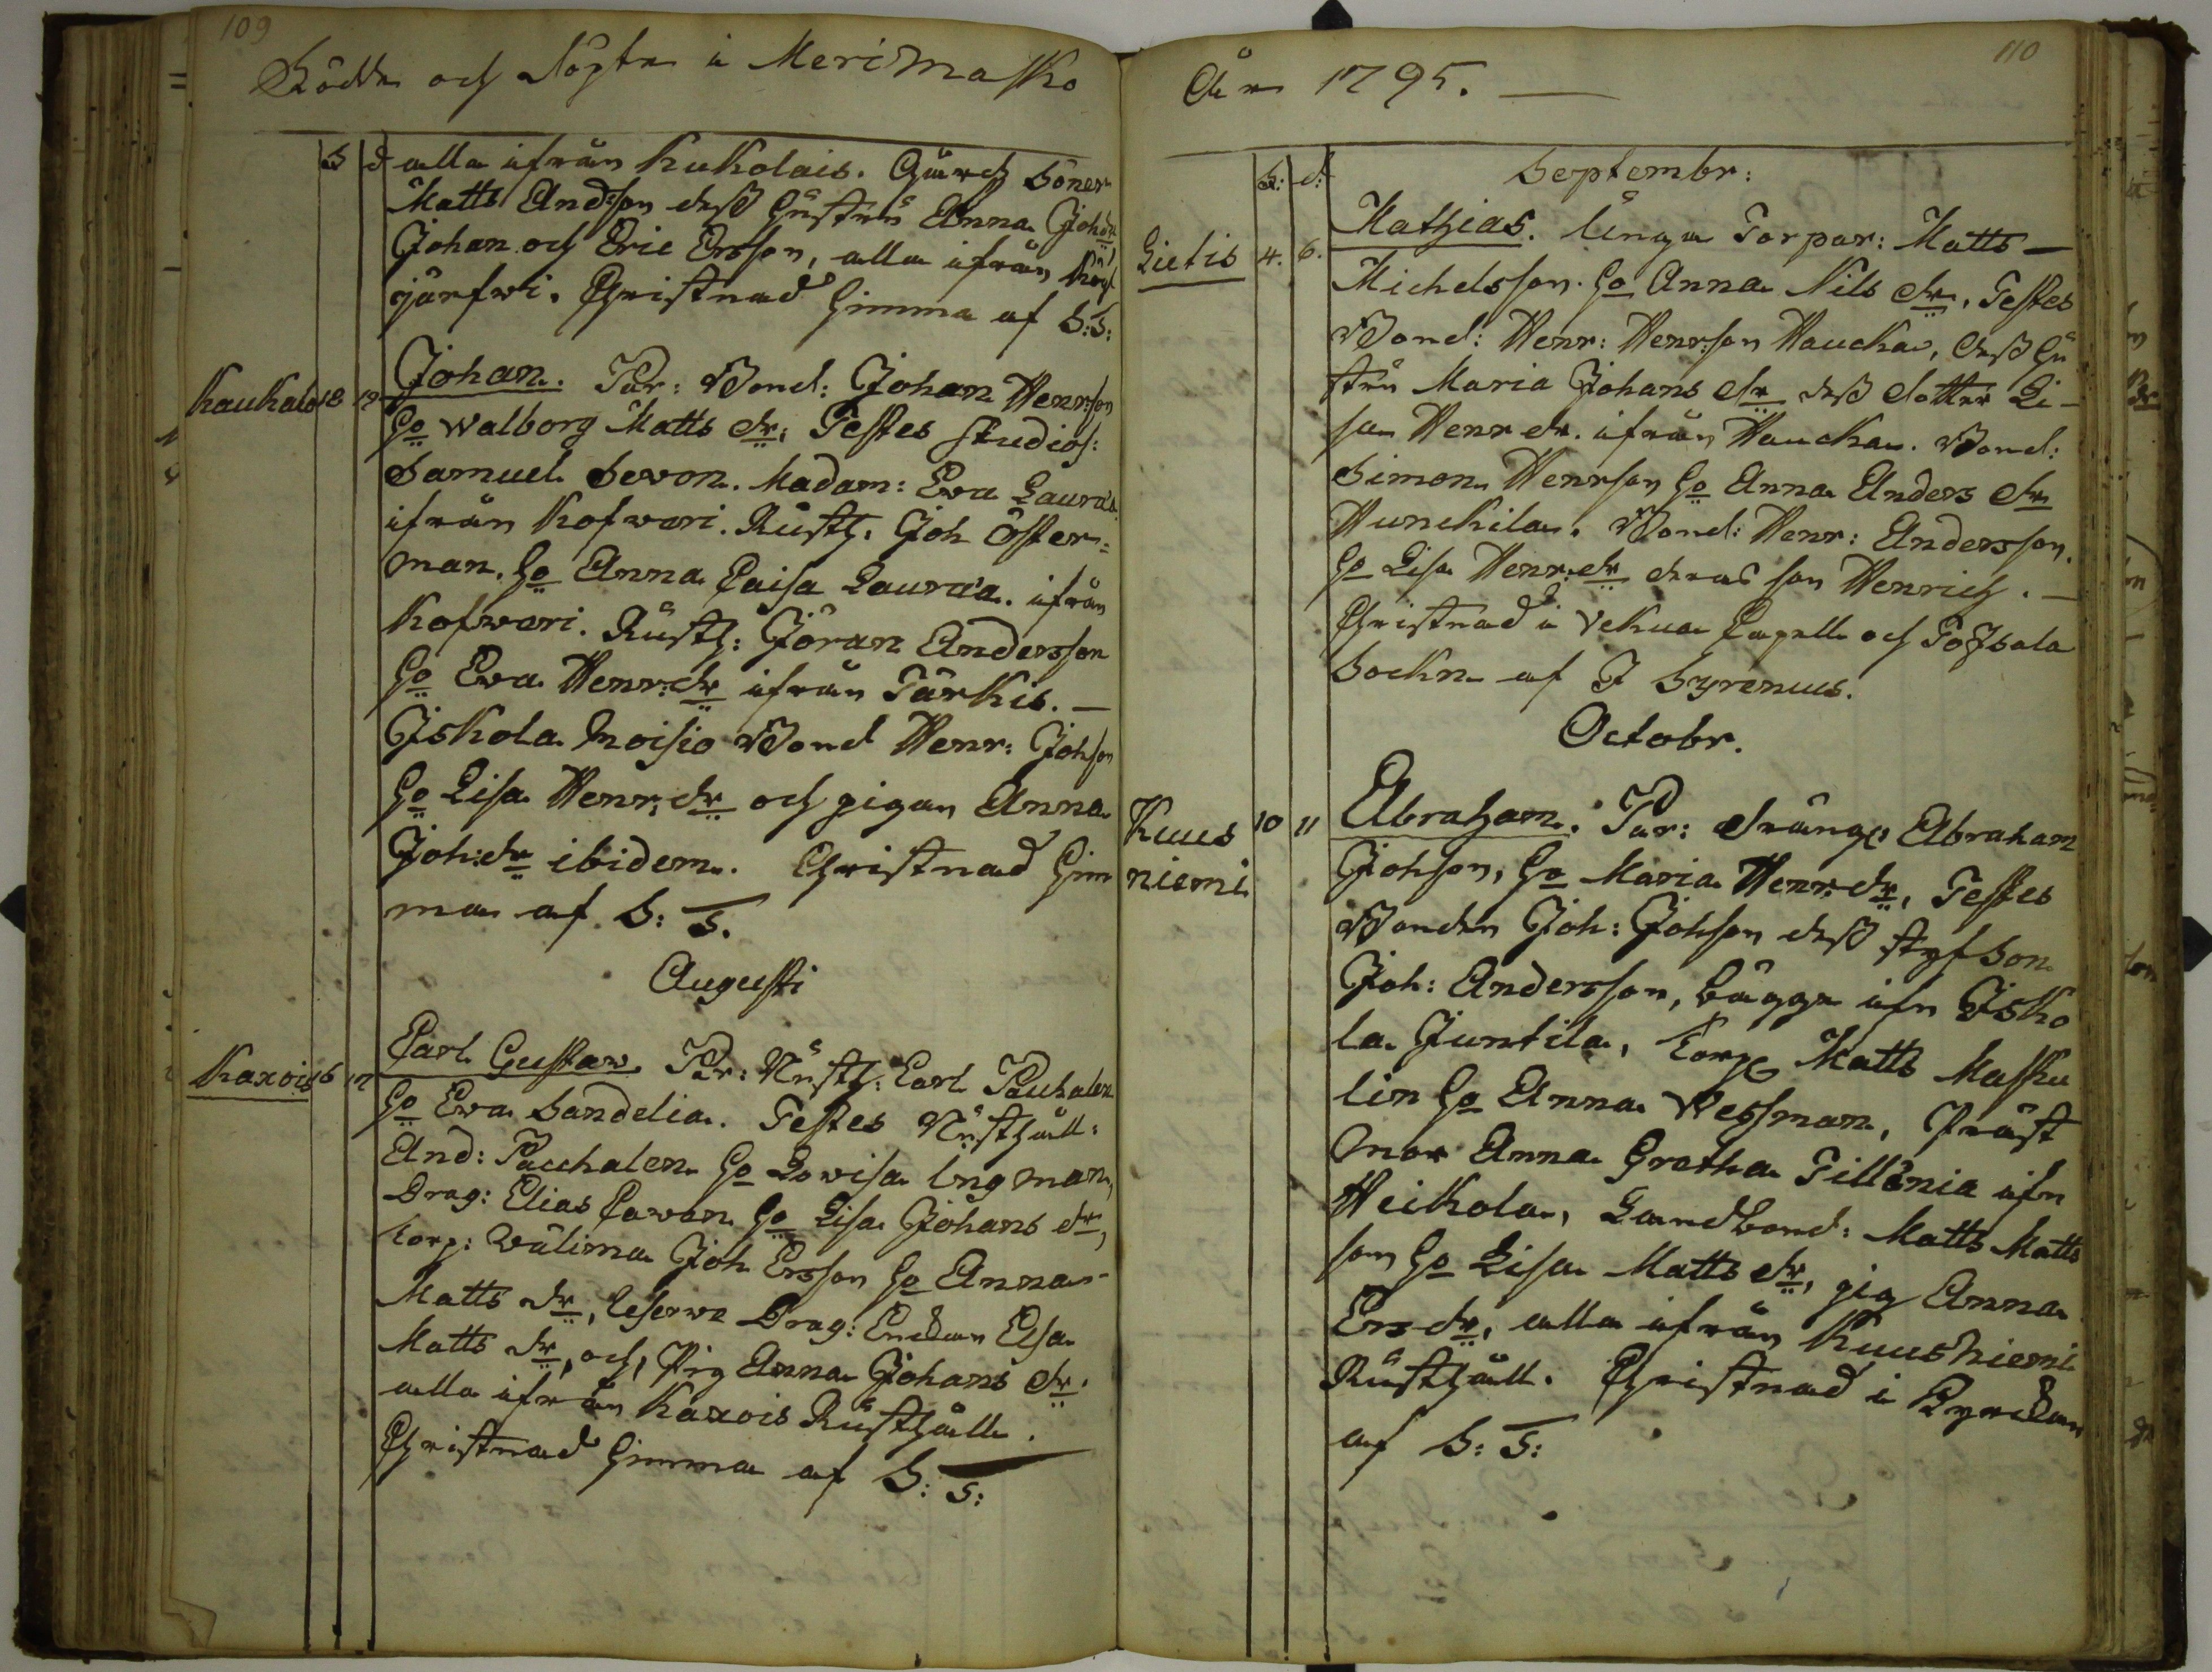 109
Födde och döpte i Merimasko
S d alla ifrån Kukolais. Gårds Sönern
Matts Andsson dess hustru Anna Joh:dr
Johan och Eric Ersson, alla ifrån
järfwi. Christnad hemma af S: S:
Kaukala 18 19 Johan. Par: Bond: Johan Henrson
ho Walborg Matts dr: Testes studios:
Samuel Sevon. Madam: Eva Lauræa
ifrån Kofweri. Rusth. Joh Öster=
man. ho Anna Caisa Lauræa. ifrån
Kofweri. Rusth: Göran Andersson
ho Eva Henr:dr ifrån Tärkis. —
Iskola Moisio Bond Henr: Johson
ho Lisa Henr:dr och pigan Anna
Joh:dr ibidem. Christnad hem
ma af S: S.
Augusti
Kaxois 16 17 Carl Gustaw. Par: Rusth: Carl Pauhalen
ho Eva Sandelia. Testes Rusthåll:
And: Pauhalen ho Lovisa Ungman,
Drag: Elias Cavan ho Lisa Johans dr,
torp: Wälima Joh Ersson ho Anna
Matts dr, Reserve Drag: Enckan Elsa
Matts dr, och, Pig Anna Johans dr:
alla ifrån Kaxois Rusthåll.
Christnad hemma af S: S:
110
År 1795. —
S: d: Septembr:
Lietis 4. 6. Mathias. Unga Torpar: Matts —
Michelsson. ho Anna Nils dr, Testes
Bond: Henr: Henrson Haucka, dess hu
stru Maria Johans dr dess dotter Li-
sa Henr dr. ifrån Hauckas. Bond:
Simon Henrson ho Anna Anders dr
Hunckila. Bond: Henr: Andersson.
ho Lisa Henr:dr deras son Henrich. —
Christnad i Vehua Capell och Töfsala
Sockn af J Syrenius.
Octobr.
Kuus
niemi 10 11 Abraham. Par: dränge Abraham
Johson, ho Maria Henr:dr, Testes
Bonden Joh: Johson dess styfson
Joh: Andersson, bägge ifn Isko
la Juntila, Torp Matts Masku
lin ho Anna Wessman, Präst
mor Anna Gretha Tillénia ifn
Heikola, Landbond: Matts Matts
son ho Lisa Matts dr, pig Anna
Ers dr, alla ifrån Kuusniemi
Rusthåll. Christnad i Kyrckan
af S: S: